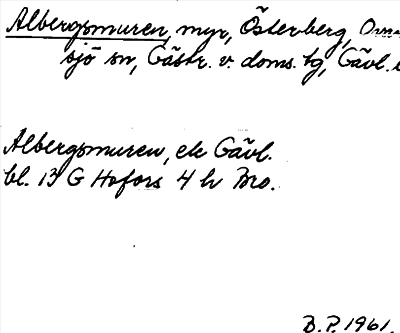 Albergsmuren, myr, Österberg,
sjö sn, Gästr. v. doms. tg, Gävl.
Albergsmuren, ek Gävl.
bl. 13 G Hofors 4 h Bro.
B.P. 1961.